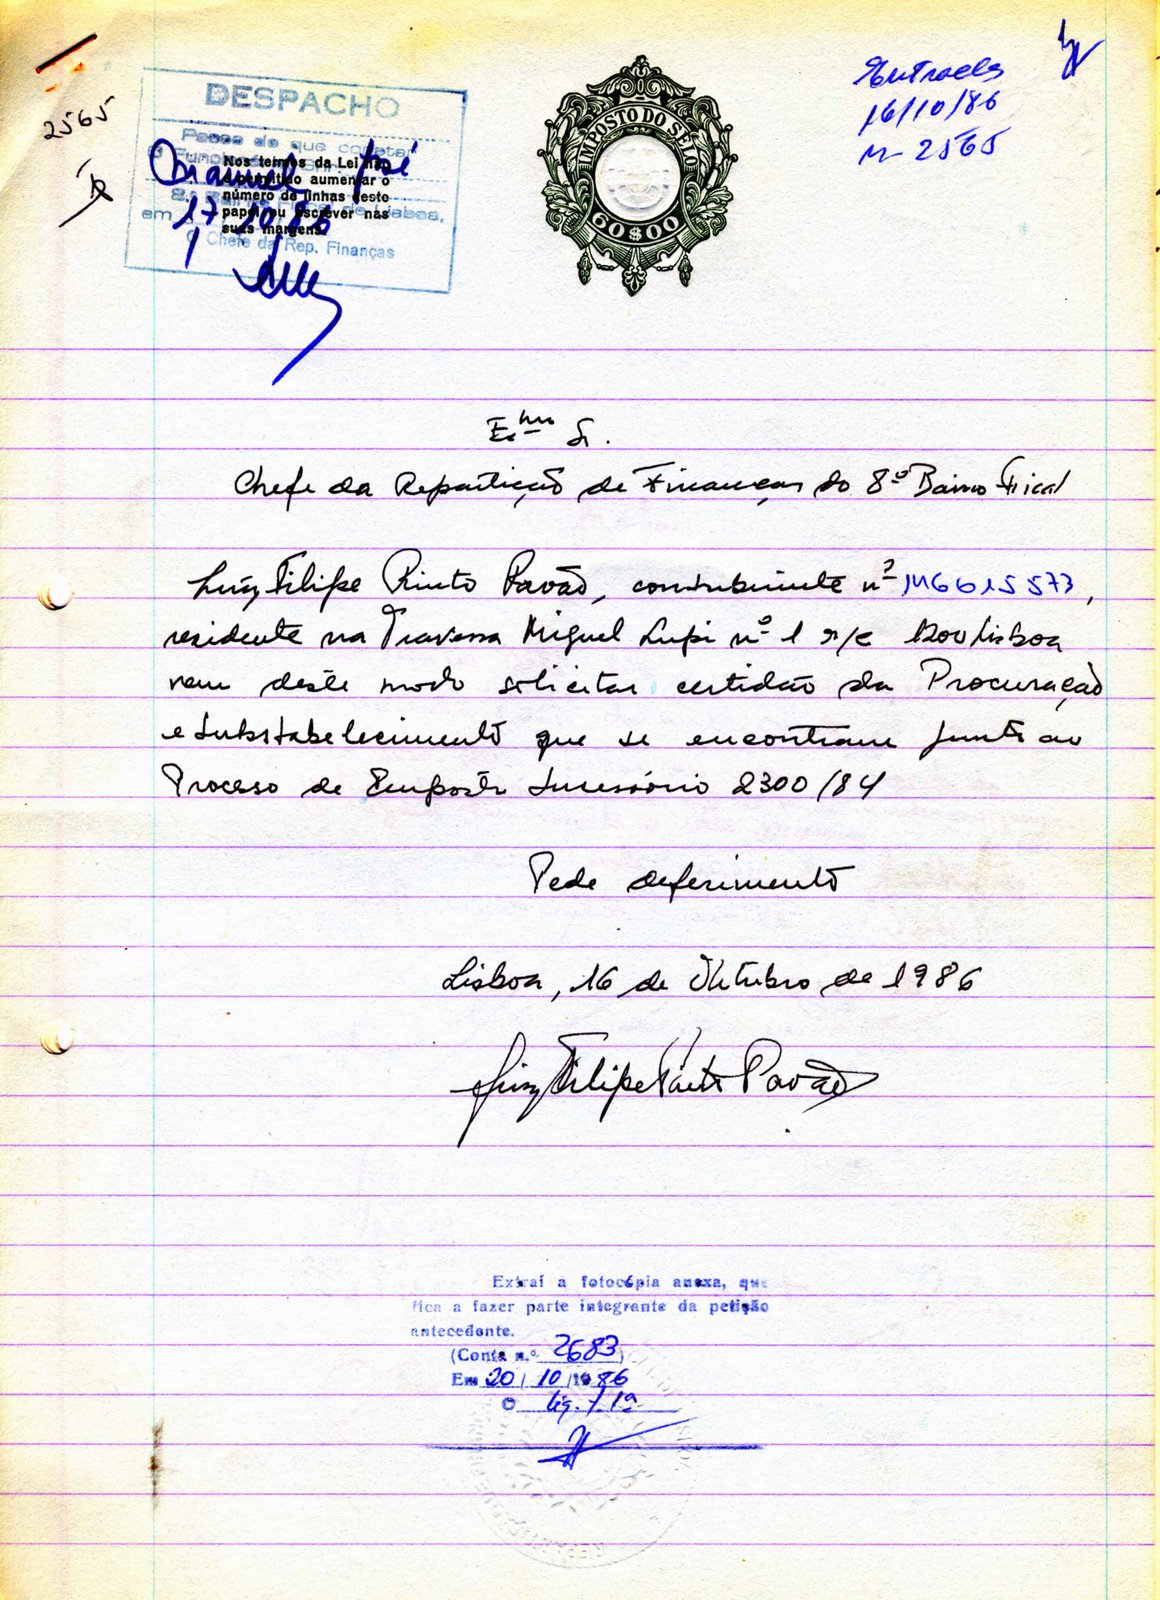 2565
DESPACHO
Passe do que constar
Manuel José
17 10/86
8.º Bairro Fiscal de Lisboa,
em
O Chefe da Rep. Finanças
Nos termos da Lei não
é permitido aumentar o
número de linhas deste
papel ou escrever nas
suas margens.
IMPOSTO DO SELO
60$00
Entrada
16/10/86
nº 2565
Exmo Sr.
Chefe da Repartição de Finanças do 8º Bairro Fiscal
Luiz Filipe Pinto Pavão, contribuinte nº 146615573,
residente na Travessa Miguel Lupi nº 1 r/c 1200 Lisboa
vem deste modo solicitar certidão da Procuração
e Substabelecimento que se encontram junto ao
Processo de Imposto Sucessório 2300/84
Pede deferimento
Lisboa, 16 de Outubro de 1986
Luiz Filipe Pinto Pavão
Extraí a fotocópia anexa, que
fica a fazer parte integrante da petição
antecedente.
(Conta n.º 2683)
Em 20/10/1986
O Liq. 1ª